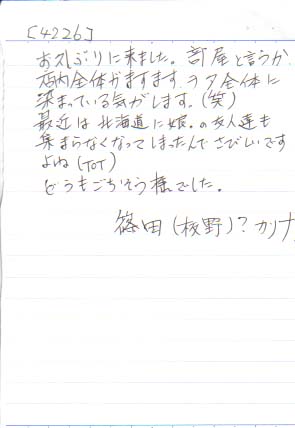 [4226]
お久しぶりに来ました。部屋と言うか
店内全体がますます ヲタ全体に
染まっている気がします。(笑)
最近は北海道に娘。の友人達も
集まらなくなってしまったんでさびしいです
よね(TOT)
どうもごちそう様でした。
篠田(板野)?カリナ